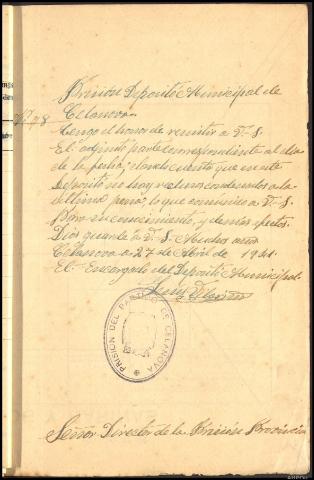 Nº 78
Prisión Deposito Municipal de
Celanova.
Tengo el honor de remitir a V. S.
El adjunto parte correspondiente al dia
de la fecha, dando cuenta que en este
Deposito no hay reclusos condenados a la
última pena, lo que comunico a V. S.
Para su conocimiento, y demas efectos.
Dios guarde a V. S. Muchos años
Celanova a 27 de Abril de 1941.
El Encargado del Depositó Municipal.
PRISION DEL PARTIDO DE CELANOVA
Señor Director de la Prisión Provincia